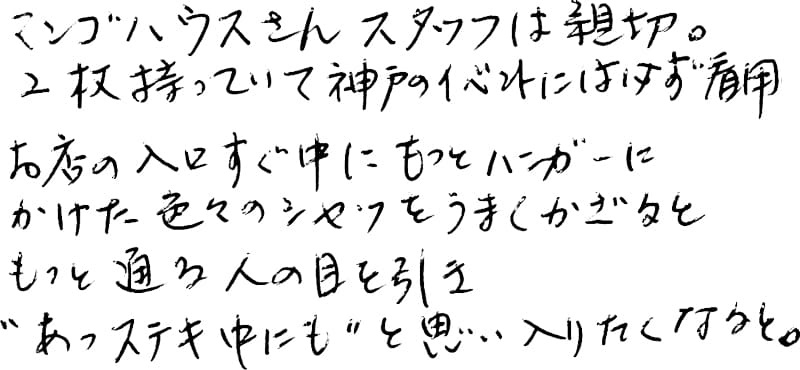 マンゴハウスさん スタッフは親切。
2枚持っていて神戸のイベントには必ず着用
お店の入口すぐ中にもっとハンガーに
かけた色々のシャツをうまくかざると
もっと通る人の目を引き
"あっステキ中にも"と思い入りたくなると。